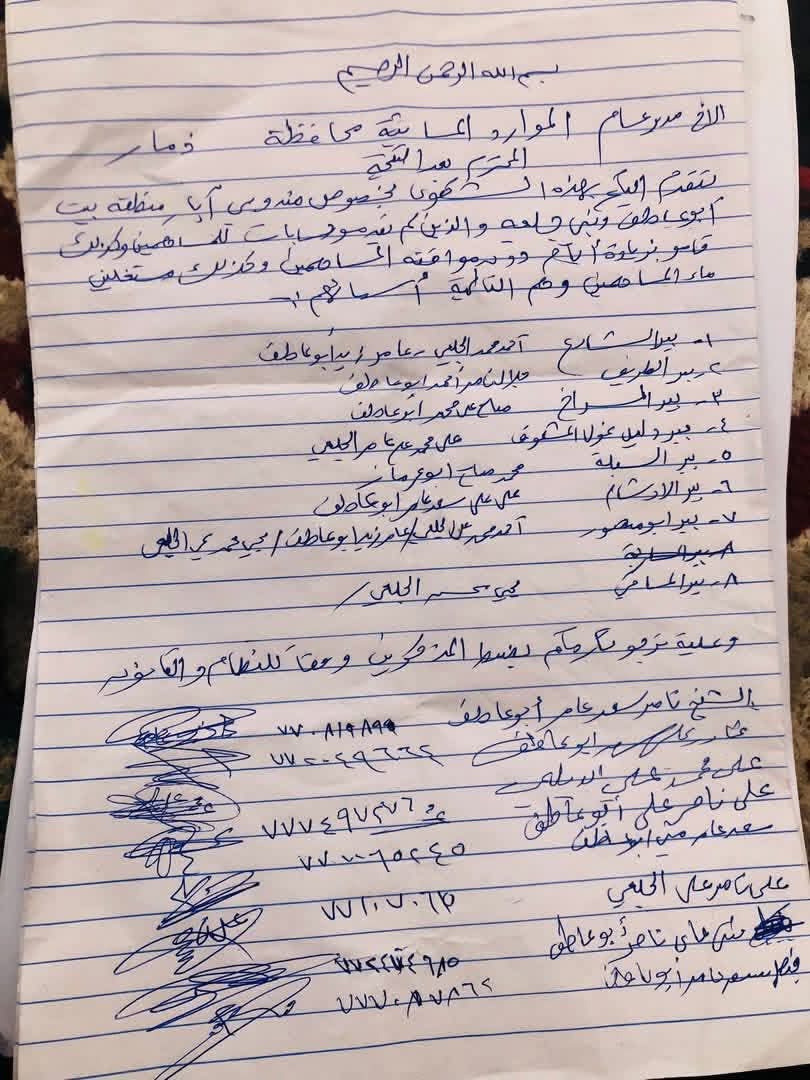 بسم الله الرحمن الرحيم
الاخ مدير عام الموارد المائية محافظة ذمار
المحترم بعد التحية
نتقدم اليكم بهذه الشكوى بخصوص مندوبي آبار منطقة بيت
أبو عاطف وبني قلعه والذين لم يقدمو حسابات للمساهمين وكذلك
قامو بزيادة أيام دون موافقة المساهمين وكذلك مستغلين
ماء المساهمين وهم التالية أسمائهم :-
١- بير الشارع أحمد محمد الجلعي - عامر زيد أبو عاطف
٢- بير الطريف جلال ناصر أحمد ابو عاطف
٣- بير المراخ صالح علي محمد ابو عاطف
٤- بير دليل علي محمد علي عامر الجلعي
٥- بير السبلة محمد صالح ابو
٦- بير الادشام علي علي سعد عامر ابو عاطف
٧- بير ابو منصور أحمد محمد علي الجلعي / عامر زيد ابو عاطف / يحيى محمد يحيى الجلعي
٨- بير المساقي يحيى محسن الجلعي /
وعلية نرجو تكرمكم بضبط المذكورين وفقاً للنظام والقانون
الشيخ ناصر سعد عامر أبو عاطف ٧٧٠٨١٩٨٩٩
ابو عاطف ٧٧٢٠٤٩٦٦٢
علي محمد علي
علي ناصر علي أبو عاطف ٧٧٧٤٩٧٢٧٦
سعد عامر مثنى ابو عاطف ٧٧٠٠٦٥٢٤٥
علي ناصر علي الجلعي
علي ناصر أبو عاطف
سعد ناصر أبو عاطف